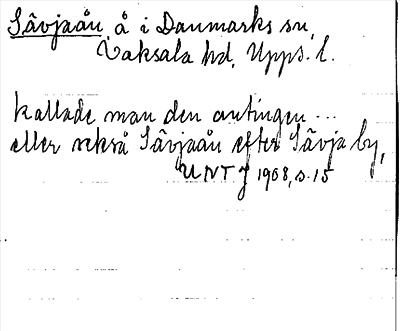 Sävjaån, å i Danmarks sn,
Vaksala hd, Upps. l.
kallade man den antingen ...
eller också Sävjaån efter Sävja by,
UNT J 1908, s. 15